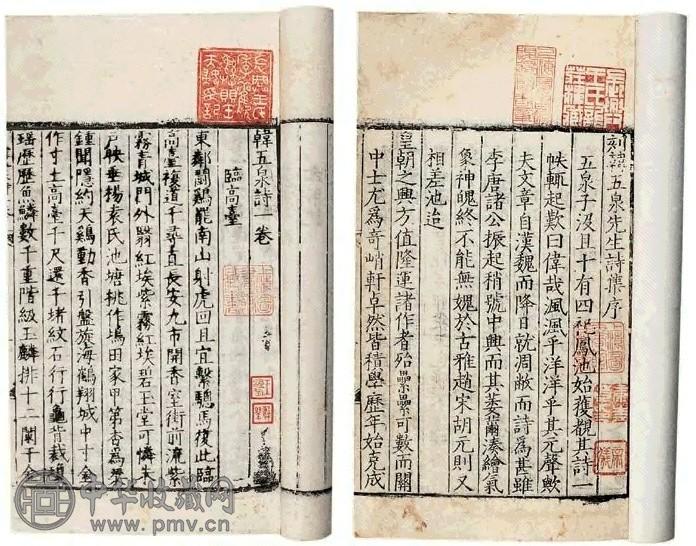 刻韓五泉先生詩集序
五泉子没且十有四祀鳳池始獲觀其詩一
帙輒起歎曰偉哉渢渢乎洋洋乎其元聲歟
夫文章自漢魏而降日就凋敝而詩為甚雖
李唐諸公振起稍號中興而其萎薾湊繪氣
象神魄終不能無媿於古雅趙宋胡元則又
相差池迨
皇朝之興方值隆運諸作者殆纍纍可數而關
中士尤為奇峭軒卓然皆積學歷年始克成
韓五泉詩一卷
臨高臺
東鄰鬪鷄罷南山射虎回且宜繫驄馬復此臨
高臺複道千尋直長安九市開香室街前流紫
霧青城門外翳紅埃紫霧紅埃碧玉堂可憐朱
戶映垂楊袁氏池塘桃作塢田家甲第杏為
鍾聞隱約天鷄動香引盤旋海鶴翔城中寸金
作寸土高臺千尺還千堵紋石行行龜背裁
瑶歷歷魚鱗數千重階級玉麟排十二闌干金
中华收藏网
www.pmv.cn